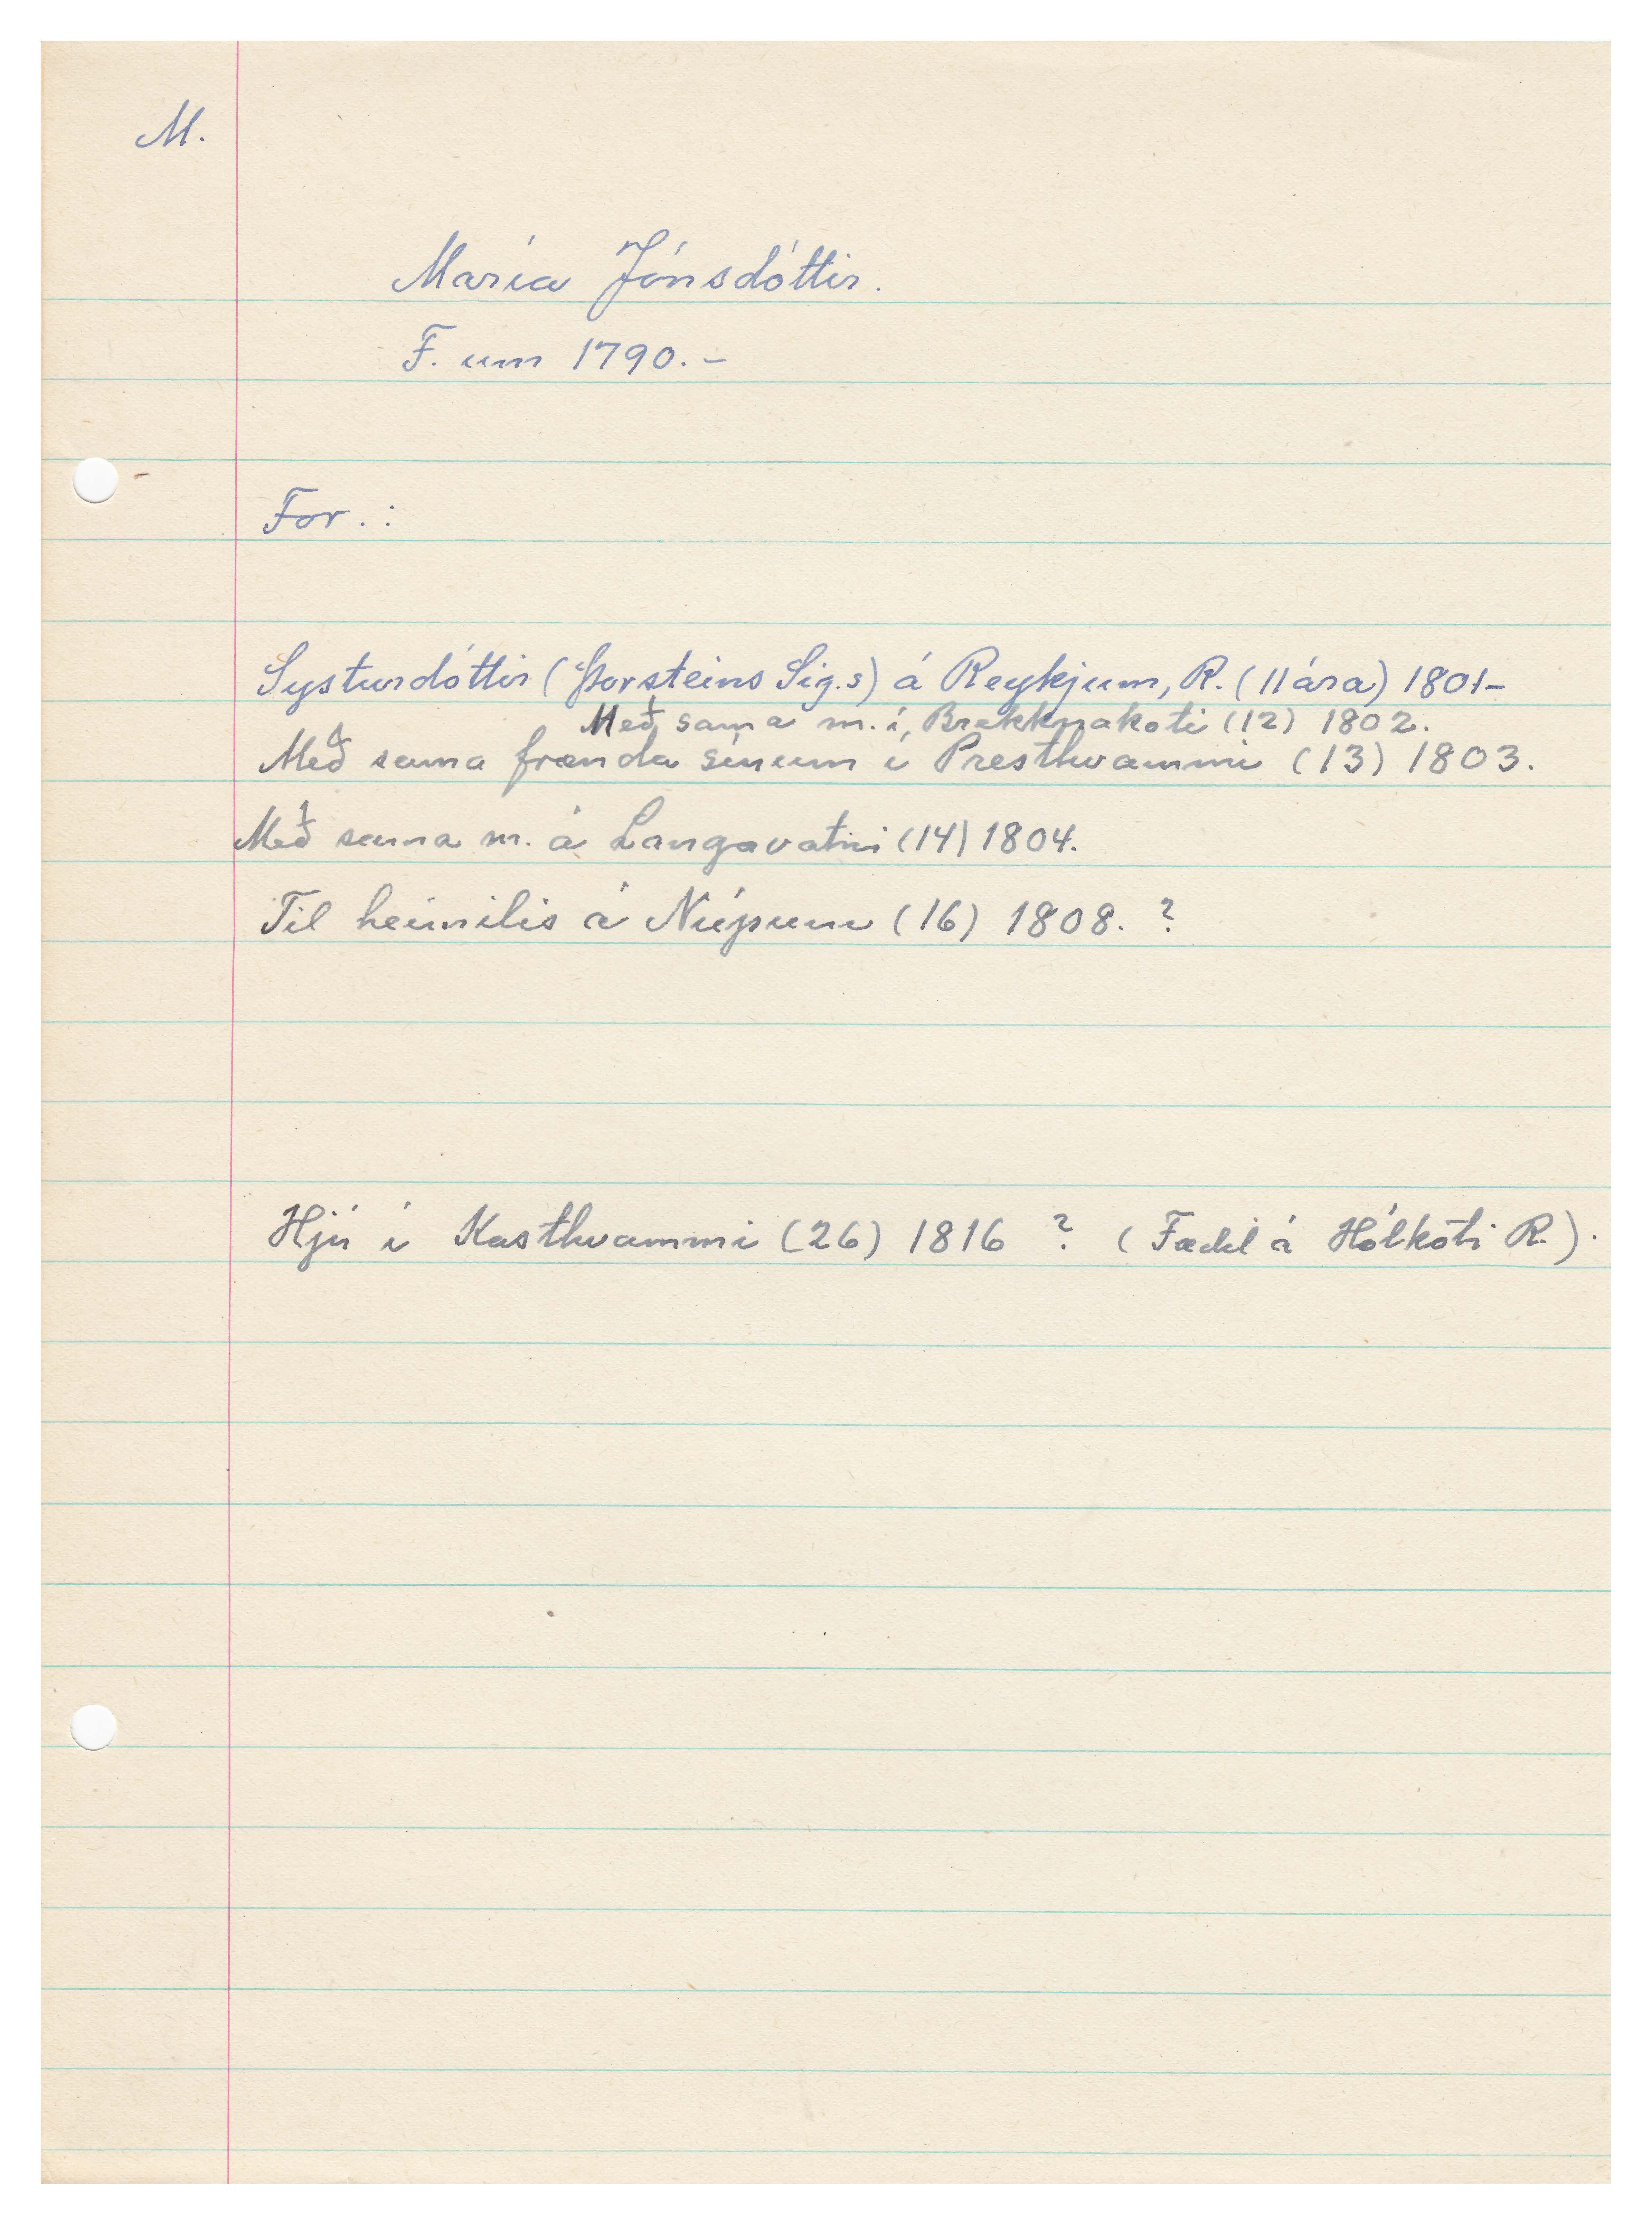 M.
María Jónsdóttir.
F. um 1790.-
For.:
Systurdóttir (Þorsteins Sig.s) á Reykjum, R. (11 ára) 1801-
Með sama m. í, Brekknakoti (12) 1802.
Með sama frænda sínum í Presthvammi (13) 1803.
Með sama m. á Langavatni (14) 1804.
Til heimilis á Núpum (16) 1808. ?
Hjú í Kasthvammi (26) 1816 ? (Fædd á Hólkoti R.).